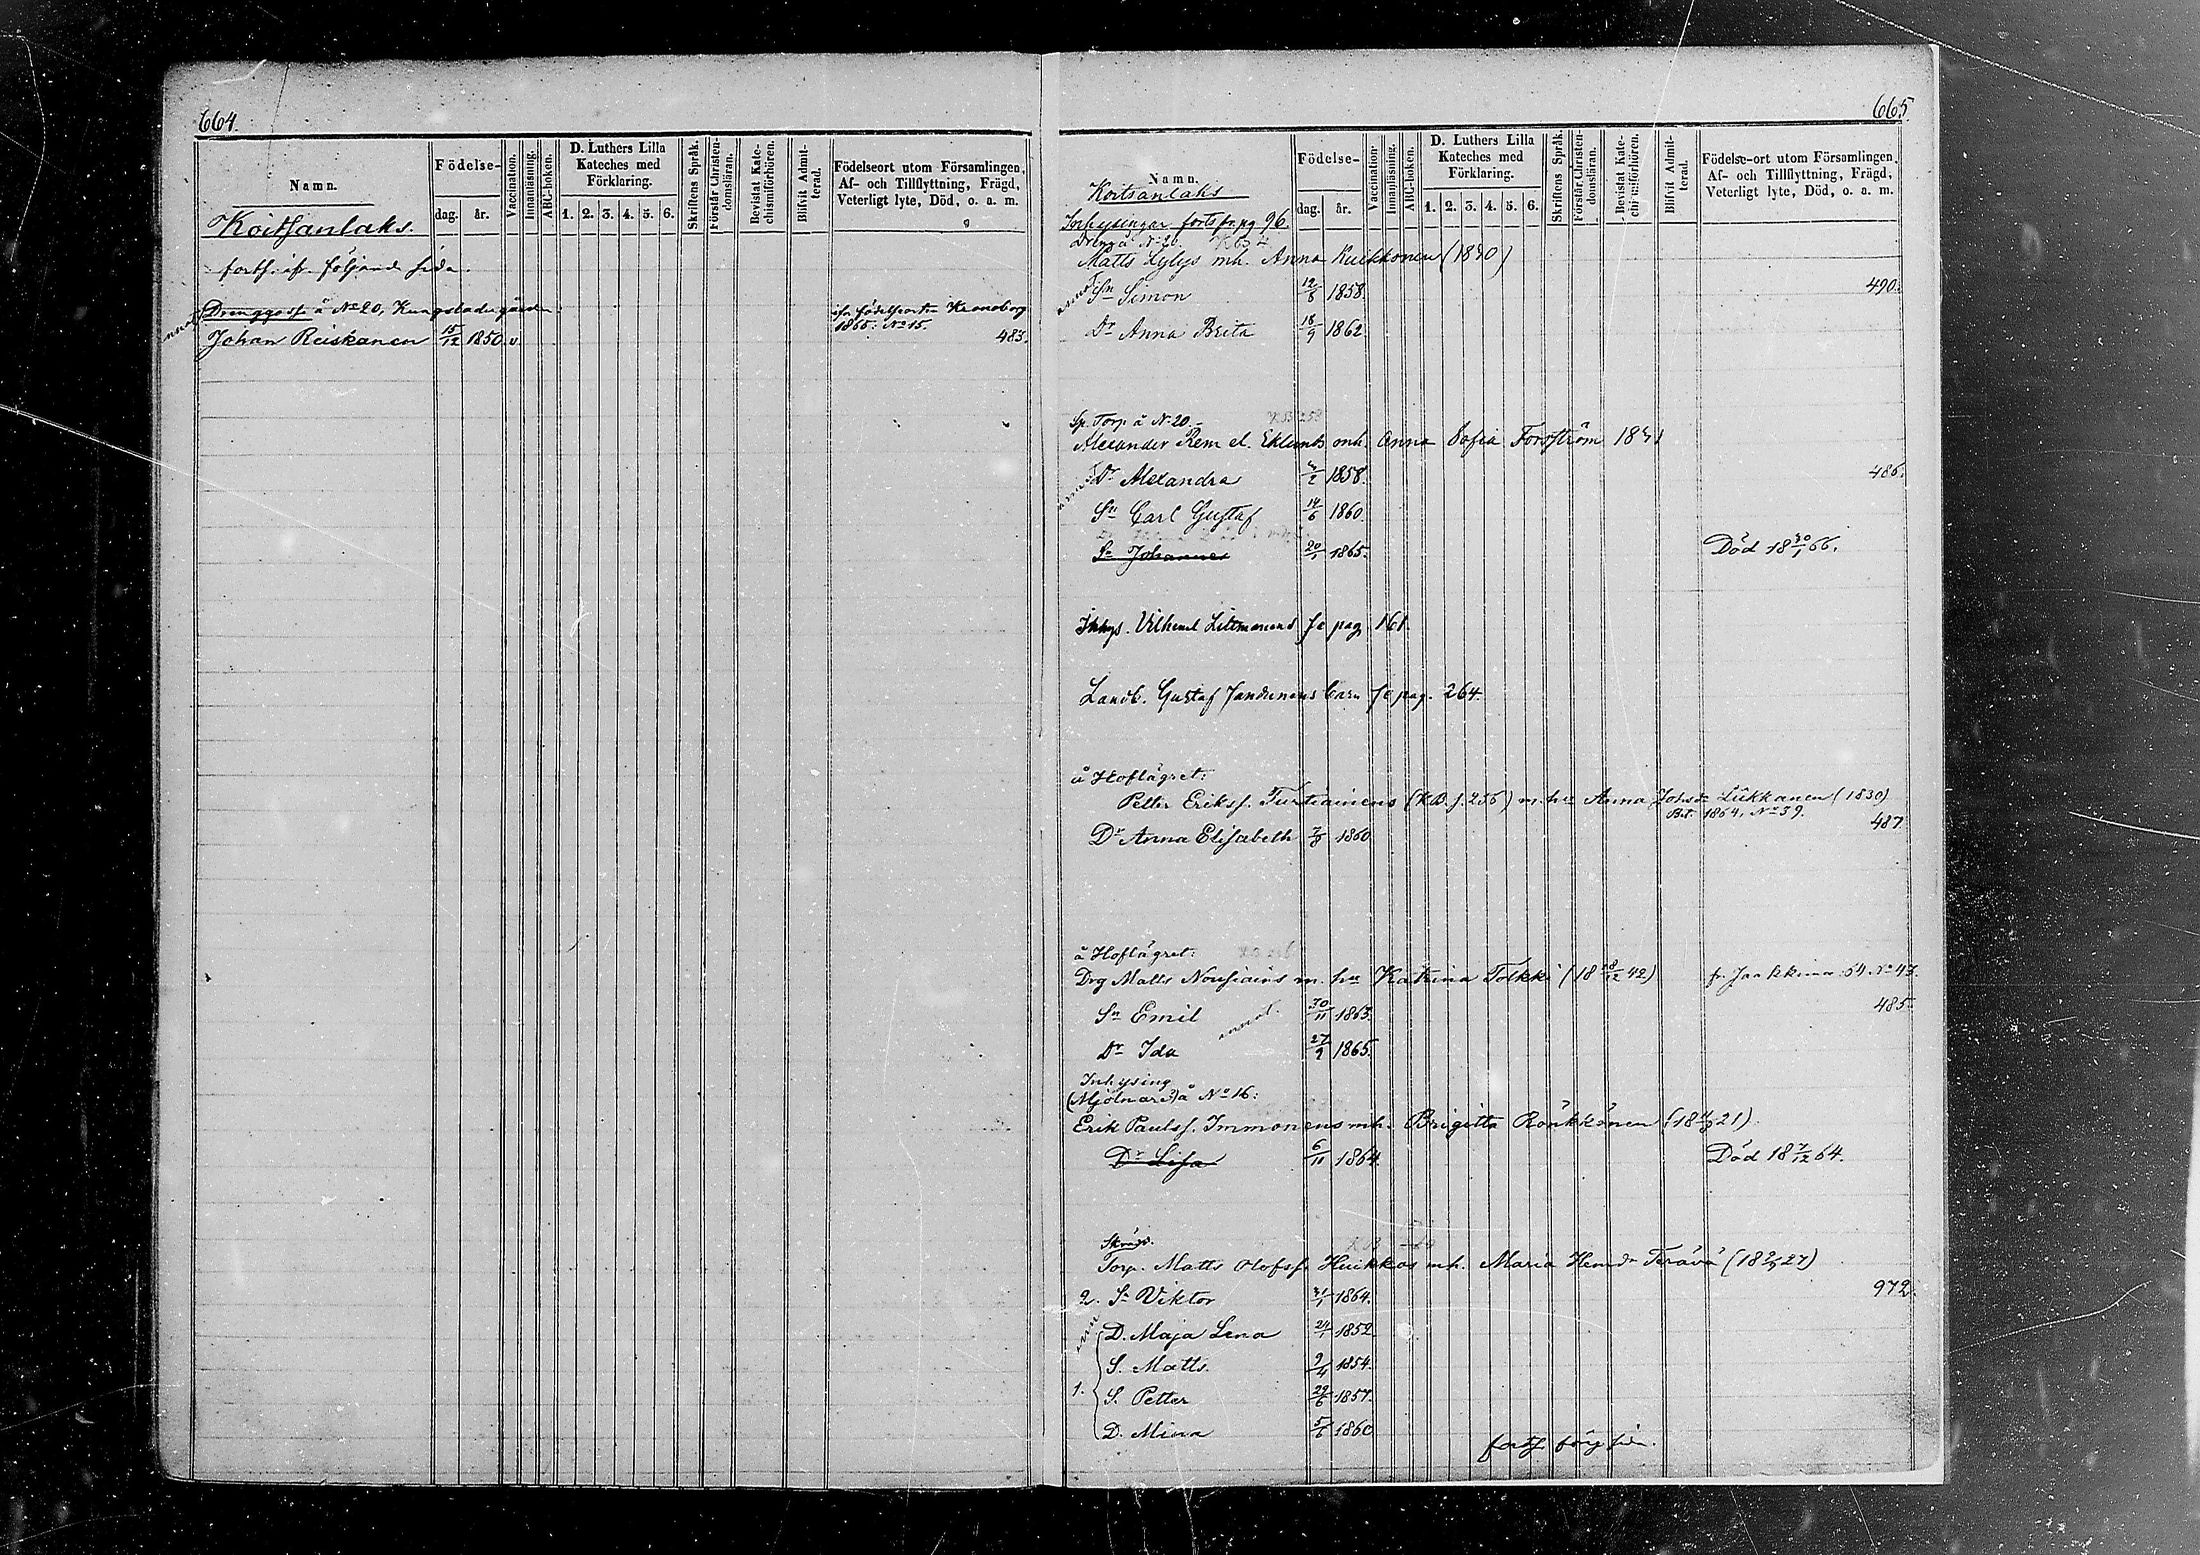 664.
Namn.
Födelse-
dag. år.
Vaccination.
Innanläsning.
ABC-boken.
D. Luthers Lilla
Kateches med
Förklaring.
1. 2. 3. 4. 5. 6.
Skriftens Språk.
Förstår Christen-
domsläran.
Bevistat Kate-
chismiförhören.
Blifvit Admit-
terad.
Födelseort utom Församlingen,
Af- och Tillflyttning, Frägd,
Veterligt lyte, Död, o. a. m.
Koitsanlaks.
forts. å följande sida.
å No 20, Kungsladugården
Kronoborg
1865: No 15.
Johan Reiskanen 15/12 1850. v. 483.
665
Namn.
Födelse-
dag. år.
Vaccination.
Innanläsning.
ABC-boken.
D. Luthers Lilla
Kateches med
Förklaring.
1. 2. 3. 4. 5. 6.
Skriftens Språk.
Förstår Christen-
domsläran.
Bevistat Kate-
chismiförhören.
Blifvit Admit-
terad.
Födelse-ort utom Församlingen,
Af- och Tillflyttning, Frägd,
Veterligt lyte, Död, o. a. m.
Koitsanlaks
Inhysingar forts fr. pg 96.
Dreng å No 20.
Matts Lylys mh. Anna
Sn Simon 1858. 490.
Dr Anna Brita 18/9 1862.
Sp. Torp å N. 20.
Alexander Rem el. Eklunds mh. Anna Sofia Forsström
Dr Alexandra 1858. 486.
Sn Carl Gustaf 14/6 1860.
Sn Johannes 20/1 1865. Död 18 30/1 66.
Inhys. Vilhem se pag 161.
Landb. Gustaf barn se pag. 264.
å Hoflägret:
Petter Erikss. Turtiainens (K.B. s. 256) m. hu Anna Johsdr Liikkanen (1830)
Bet. 1864, No 39.
Dr Anna Elisabeth 7/8 1860 487
å Hoflägret:
Drg Matts Nousiains m. hu Katrina Tolkki (18 18/12 42) fr. Jaakkima 64. No 47.
Sn Emil 30/11 1863. 485.
Dr Ida 27/9 1865.
Inhysing
(Mjölnare) å No 16:
Erik Paulss. Immonens mh. Brigitta Rönkkönen
Dr Lisa 6/11 1864. Död 18 7/12 64.
Torp. Matts Olofss. Huikkos mh. Maria Hensdr Terävä
2. Sn Viktor 31/1 1864. 972.
D. Maja Lena 24/1 1852
S. Matts. 9/4 1854.
1. S. Petter 29/6 1857.
D. Mina 1860
forts. följ sida.